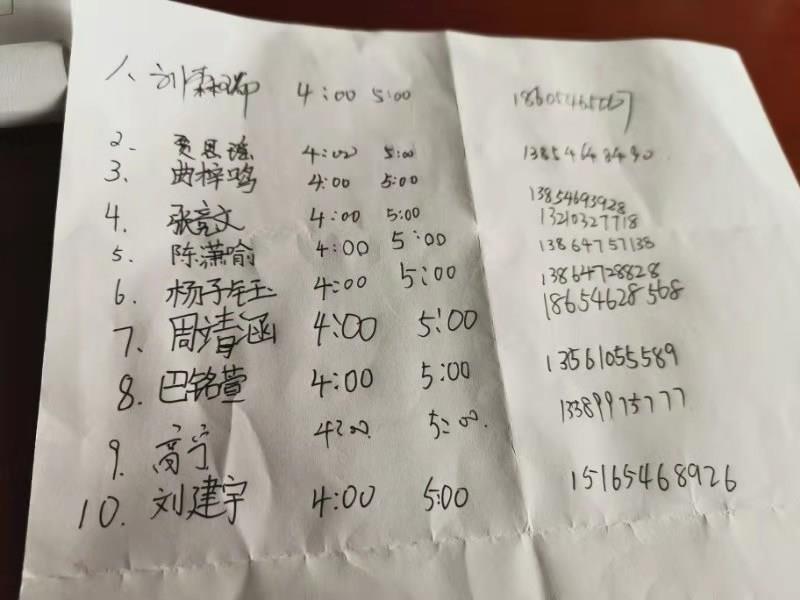 1、刘森 4:00 5:00
2. 贾思瑶 4:00 5:00 13854648490
3. 曲梓鸣 4:00 5:00 13854693928
4. 张竞文 4:00 5:00 13210327718
5. 陈潇喻 4:00 5:00 13864757138
6. 杨子 4:00 5:00 13864728828
18654628568
7、周靖涵 4:00 5:00
8. 巴铭萱 4:00 5:00 13561055589
13389975777
9. 高宁 4:00 5:00
10. 刘建宇 4:00 5:00 15165468926